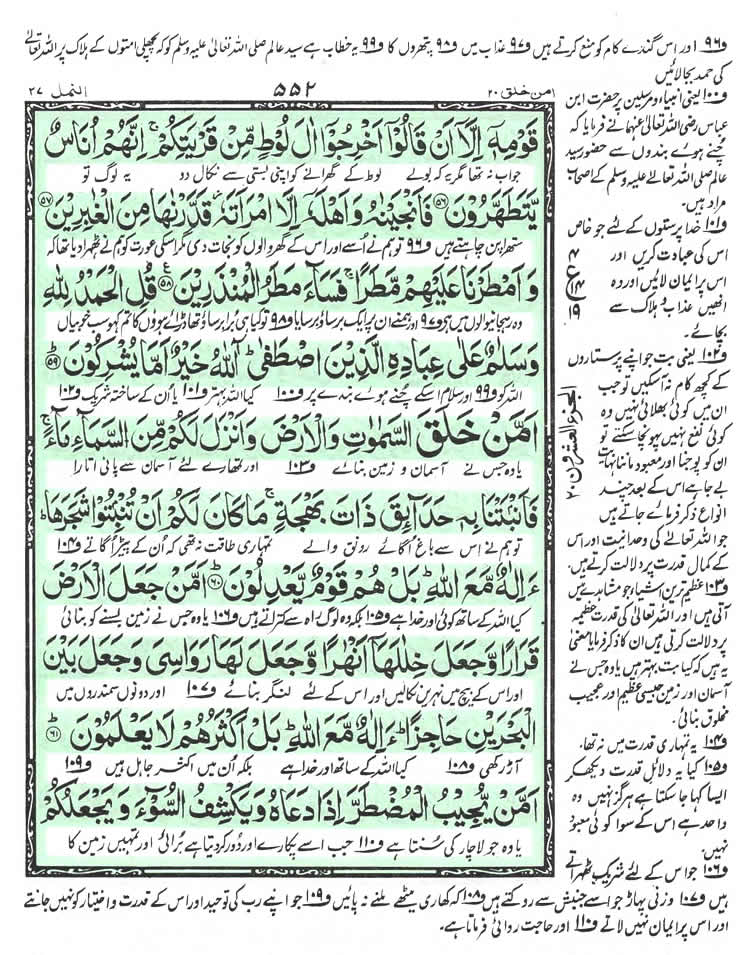 ف۹۶ اور اس گندے کام کو منع کرتے ہیں ف۹۷ عذاب میں ف۹۸ پتھروں کا ف۹۹ یہ خطاب ہے سید عالم صلی اللہ تعالیٰ علیہ وسلم کو کہ پچھلی امتوں کے ہلاک پر اللہ تعالیٰ
کی حمد بجا لائیں
امن خلق ۲۰
۵۵۲
النمل ۲۷
قَوْمِهٖۤ اِلَّاۤ اَنْ قَالُوْۤا اَخْرِجُوْۤا اٰلَ لُوْطٍ مِّنْ قَرْیَتِكُمْۚ اِنَّهُمْ اُنَاسٌ
جواب نہ تھا مگر یہ کہ بولے لوط کے گھرانے کو اپنی بستی سے نکال دو یہ لوگ تو
یَّتَطَهَّرُوْنَ ۵۶ فَاَنْجَیْنٰهُ وَ اَهْلَهٗۤ اِلَّا امْرَاَتَهٗ٘ قَدَّرْنٰهَا مِنَ الْغٰبِرِیْنَ ۵۷
ستھرا پن چاہتے ہیں ف۹۶ تو ہم نے اسے اور اس کے گھر والوں کو نجات دی مگر اسکی عورت کو ہم نے ٹھہرا دیا تھا کہ
وَ اَمْطَرْنَا عَلَیْهِمْ مَّطَرًاۚ فَسَآءَ مَطَرُ الْمُنْذَرِیْنَ ۵۸ قُلِ الْحَمْدُ لِلّٰهِ
وہ رہ جانیوالوں میں ہے ف۹۷ اور ہم نے ان پر ایک برساؤ برسایا ف۹۸ تو کیا ہی برا برساؤ تھا ڈرائے ہوؤں کا تم کہو سب خوبیاں
وَ سَلٰمٌ عَلٰى عِبَادِهِ الَّذِیْنَ اصْطَفٰىؕ آٰللّٰهُ خَیْرٌ اَمَّا یُشْرِكُوْنَ ۵۹
اللہ کو ف۹۹ اور سلام اسکے چنے ہوئے بندے پر ف۱۰۰ کیا اللہ بہتر ف۱۰۱ یا ان کے ساختہ شریک ف۱۰۲
اَمَّنْ خَلَقَ السَّمٰوٰتِ وَ الْاَرْضَ وَ اَنْزَلَ لَكُمْ مِّنَ السَّمَآءِ مَآءًۚ
یا وہ جس نے آسمان و زمین بنائے ف۱۰۳ اور تمہارے لئے آسمان سے پانی اتارا
فَاَنْۢبَتْنَا بِهٖ حَدَآىٕقَ ذَاتَ بَهْجَةٍۚ مَا كَانَ لَكُمْ اَنْ تُنْۢبِتُوْا شَجَرَهَاؕ
تو ہم نے اس سے باغ اگائے رونق والے تمہاری طاقت نہ تھی کہ ان کے پیڑ اگاتے ف۱۰۴
ءَاِلٰهٌ مَّعَ اللّٰهِؕ بَلْ هُمْ قَوْمٌ یَّعْدِلُوْنَ ۶۰ اَمَّنْ جَعَلَ الْاَرْضَ
کیا اللہ کے ساتھ کوئی اور خدا ہے ف۱۰۵ بلکہ وہ لوگ راہ سے کتراتے ہیں ف۱۰۶ یا وہ جس نے زمین بسنے کو بنائی
قَرَارًا وَّ جَعَلَ خِلٰلَهَاۤ اَنْهٰرًا وَّ جَعَلَ لَهَا رَوَاسِیَ وَ جَعَلَ بَیْنَ
اور اس کے بیچ میں نہریں نکالیں اور اس کے لئے لنگر بنائے ف۱۰۷ اور دونوں سمندروں میں
الْبَحْرَیْنِ حَاجِزًاؕ ءَاِلٰهٌ مَّعَ اللّٰهِؕ بَلْ اَكْثَرُهُمْ لَا یَعْلَمُوْنَ ۶۱
آڑ رکھی ف۱۰۸ کیا اللہ کے ساتھ اور خدا ہے بلکہ ان میں اکثر جاہل ہیں ف۱۰۹
اَمَّنْ یُّجِیْبُ الْمُضْطَرَّ اِذَا دَعَاهُ وَ یَكْشِفُ السُّوْٓءَ وَ یَجْعَلُكُمْ
یا وہ جو لاچار کی سنتا ہے ف۱۱۰ جب اسے پکارے اور دور کر دیتا ہے برائی اور تمہیں زمین کا
ف۱۰۰ یعنی انبیاء و مرسلین پر حضرت ابن
عباس رضی اللہ تعالیٰ عنہما نے فرمایا کہ
چنے ہوئے بندوں سے حضور سید
عالم صلی اللہ تعالےٰ علیہ وسلم کے اصحاب
مراد ہیں۔
ف۱۰۱ خدا پرستوں کے لئے جو خاص
اس کی عبادت کریں اور
اس پر ایمان لائیں اور وہ
انھیں عذاب و ہلاک سے
بچائے۔
ع
۴
۱۴
۱۹
ف۱۰۲ یعنی بت جو اپنے پرستاروں
کے کچھ کام نہ آسکیں تو جب
ان میں کوئی بھلائی نہیں وہ
کوئی نفع نہیں پہونچا سکتے تو
ان کو پوجنا اور معبود ماننا نہایت
بے جا ہے اس کے بعد چند
انواع ذکر فرمائے جاتے ہیں
جو اللہ تعالےٰ کی وحدانیت اور اس
کے کمال قدرت پر دلالت کرتے ہیں۔
الجزء العشرون ۲۰
ف۱۰۳ عظیم ترین اشیاء جو مشاہدے میں
آتی ہیں اور اللہ تعالیٰ کی قدرت عظیمہ
پر دلالت کرتی ہیں ان کا ذکر فرمایا معنیٰ
یہ ہیں کہ کیا بت بہتر ہیں یا وہ جس نے
آسمان اور زمین جیسی عظیم اور عجیب
مخلوق بنائی۔
ف۱۰۴ یہ تمہاری قدرت میں نہ تھا۔
ف۱۰۵ کیا یہ دلائل قدرت دیکھ کر
ایسا کہا جا سکتا ہے ہرگز نہیں وہ
واحد ہے اس کے سوا کوئی معبود
نہیں۔
ف۱۰۶ جو اس کے لئے شریک ٹھہراتے
ہیں ف۱۰۷ وزنی پہاڑ جو اسے جنبش سے روکتے ہیں ف۱۰۸ کہ کھاری میٹھے ملنے نہ پائیں ف۱۰۹ جو اپنے رب کی توحید اور اس کے قدرت و اختیار کو نہیں جانتے
اور اس پر ایمان نہیں لاتے ف۱۱۰ اور حاجت روائی فرماتا ہے۔